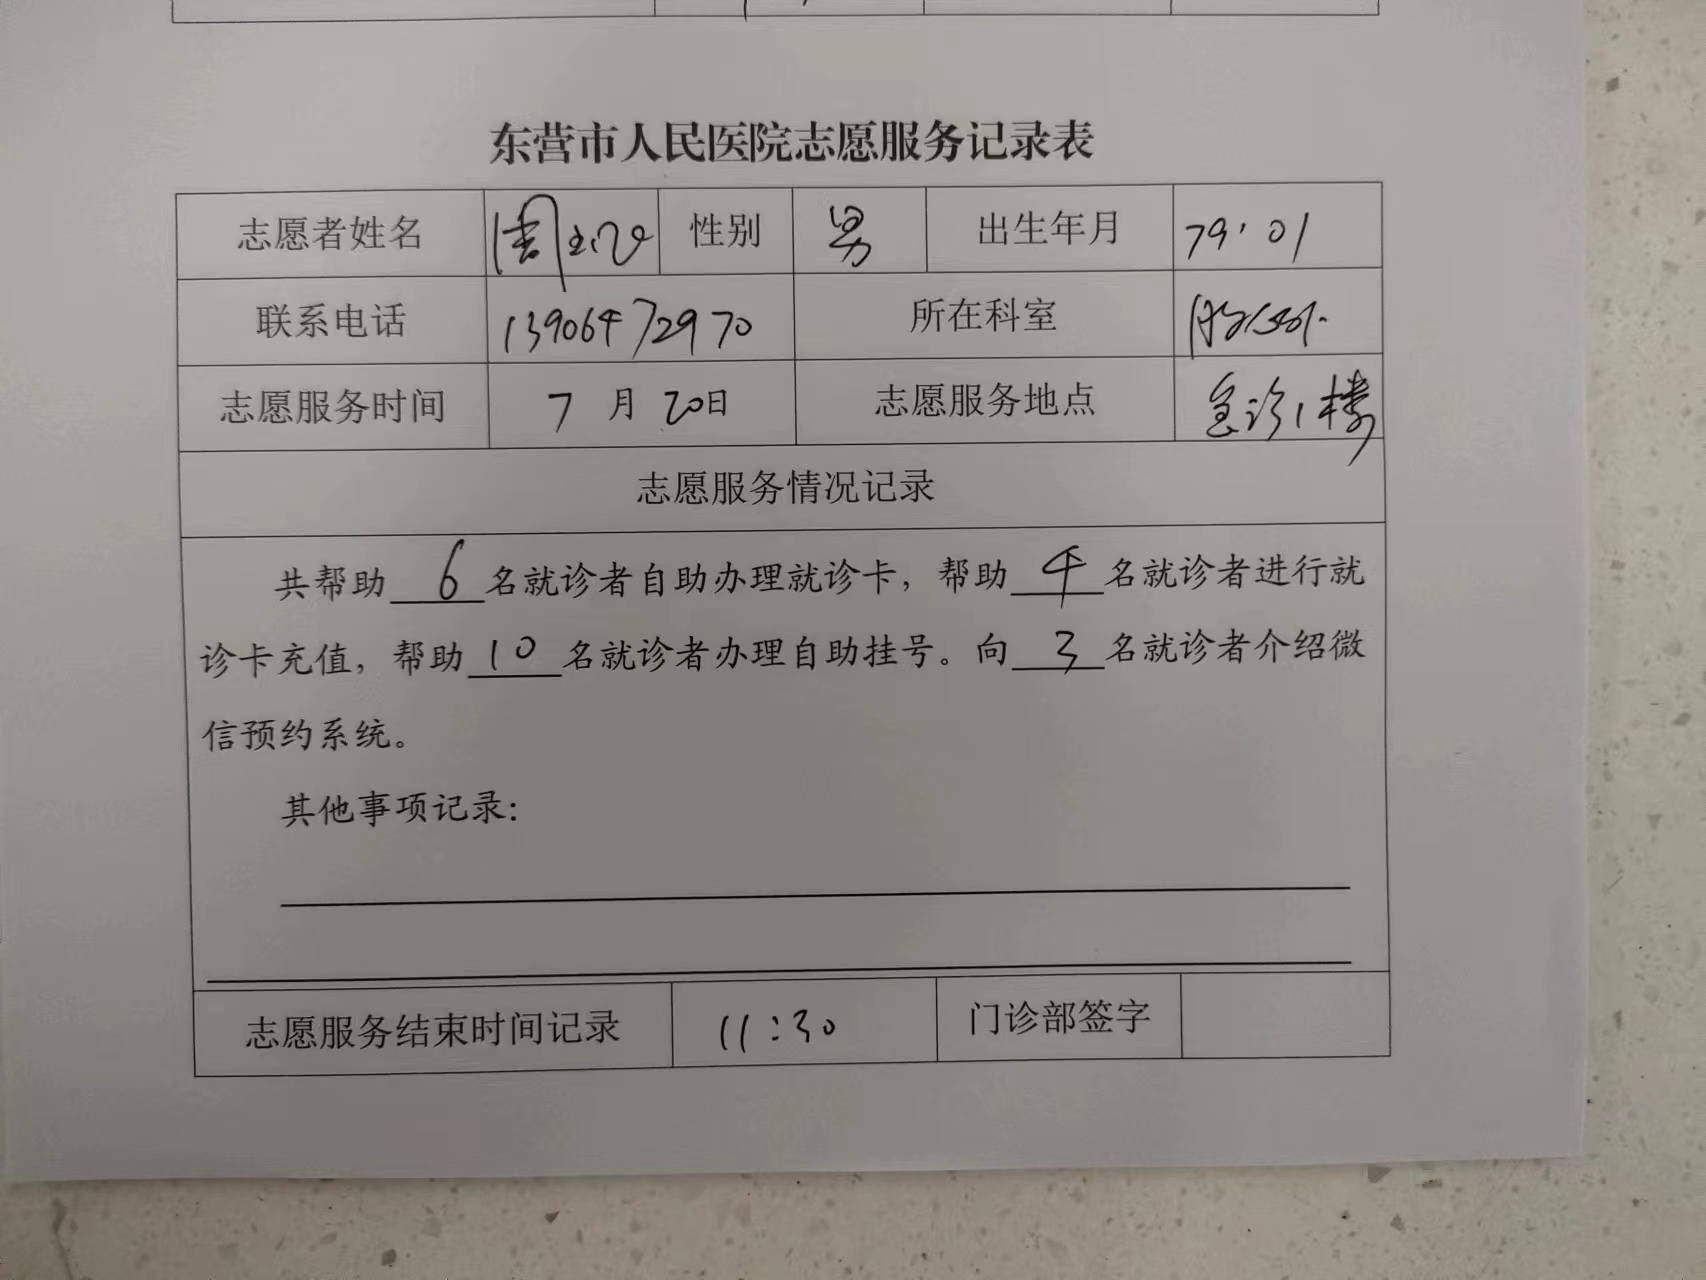 东营市人民医院志愿服务记录表
志愿者姓名 周 性别 男 出生年月 79.01
联系电话 13906472970 所在科室
志愿服务时间 7月20日 志愿服务地点 急诊1楼
志愿服务情况记录
共帮助6名就诊者自助办理就诊卡，帮助4名就诊者进行就
诊卡充值，帮助10名就诊者办理自助挂号。向3名就诊者介绍微
信预约系统。
其他事项记录：
志愿服务结束时间记录 11:30 门诊部签字